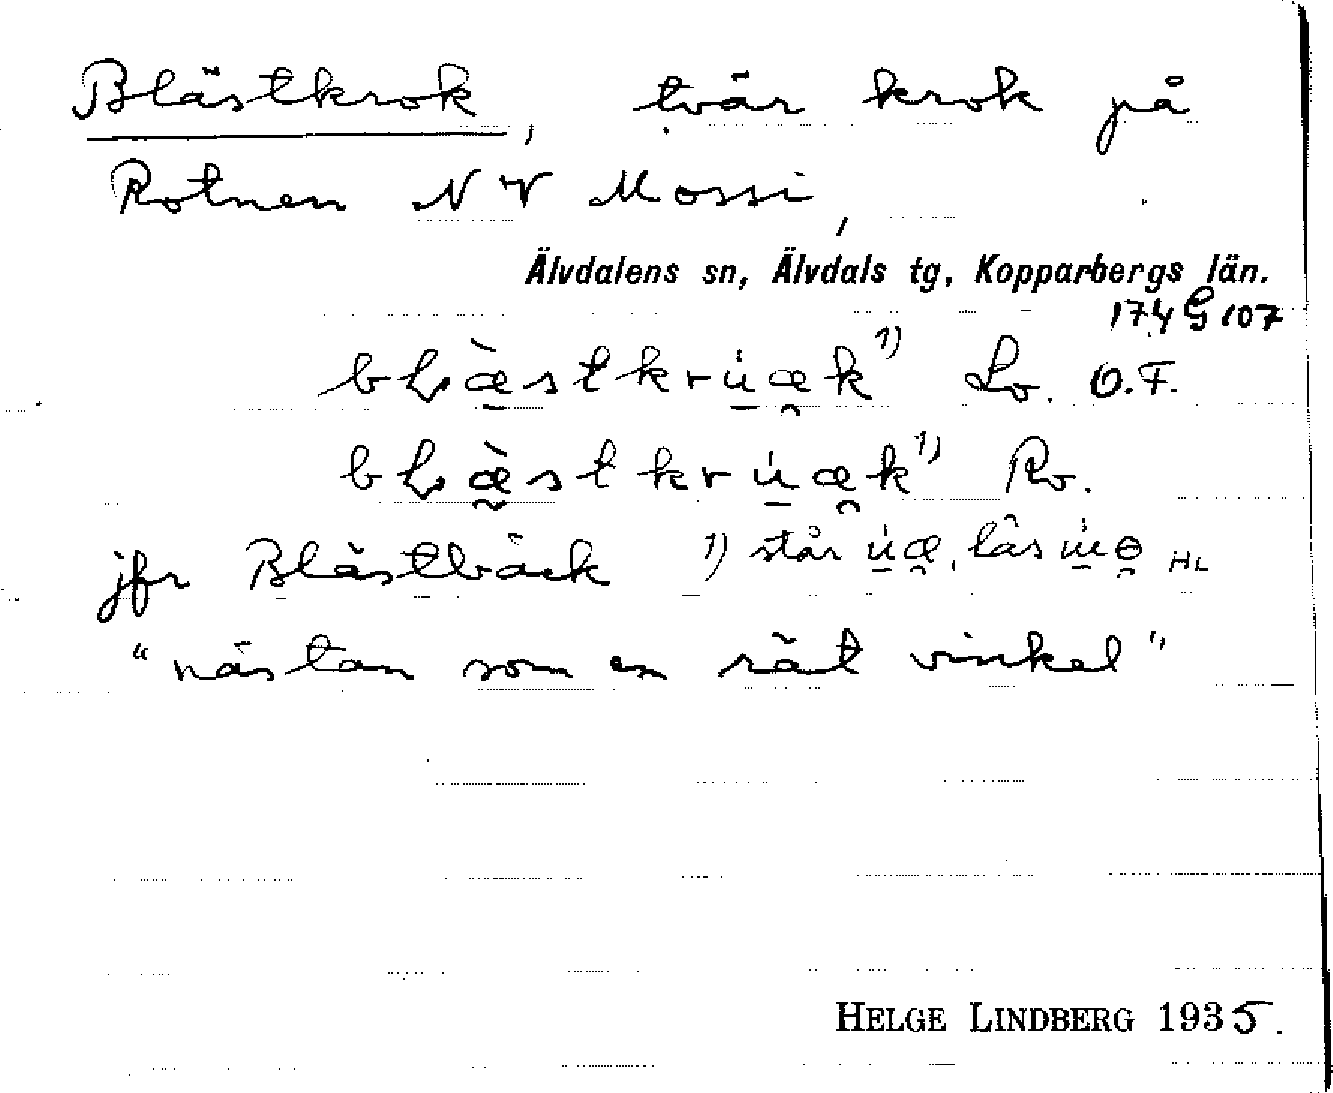 Blästkrok, tvär krok på
Rotnen NV Mossi,
Älvdalens sn, Älvdals tg, Kopparbergs län.
174 G 107
bḷæ̠̀stkru̠̇æ̯k ¹⁾ Lo. O.F.
bḷæ̰̀stkru̠̇æ̯k ¹⁾ Ro.
jfr Blästbäck 1) står u̠̇æ̯, läs u̠̇ɵ̯ HL
"nästan som en rät vinkel"
HELGE LINDBERG 1935.